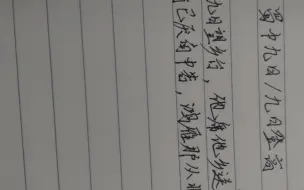 蜀中九日/九日登高
九日望乡台，他席他乡送
已厌南中苦，鸿雁那从